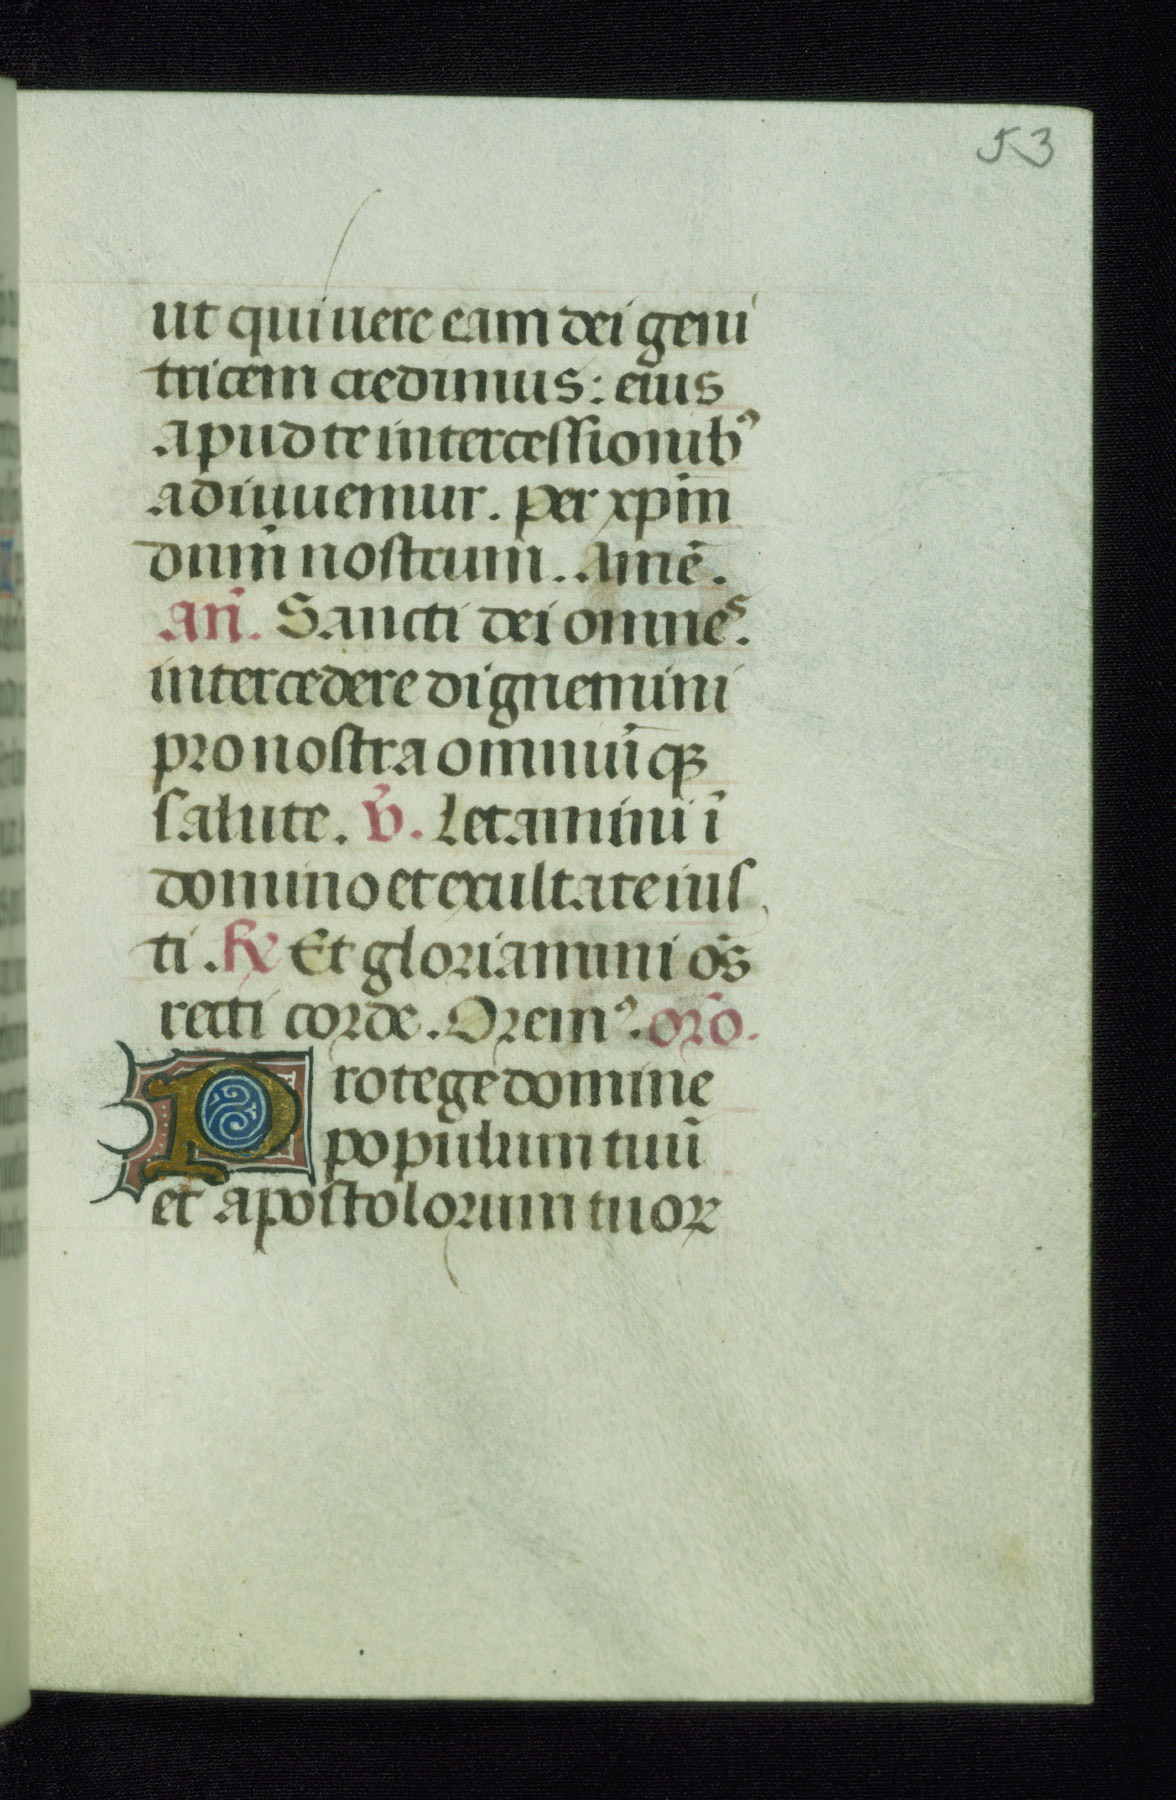 53
ut qui uere eam dei geni
tricem credimus: eius
apud te intercessionibꝰ
adiuuemur. per xp̄m
dnm̄ nostrum. Amē.
an̄. Sancti dei omnes.
intercedere dignemini
pro nostra omniūqꝫ
salute. v̄. Letamini ī
domino et exultate ius
ti. ℟ Et gloriamini oēs
recti corde. Oremꝰ. or̄o.
Protege domine
populum tuū
et apostolorum tuoꝝ